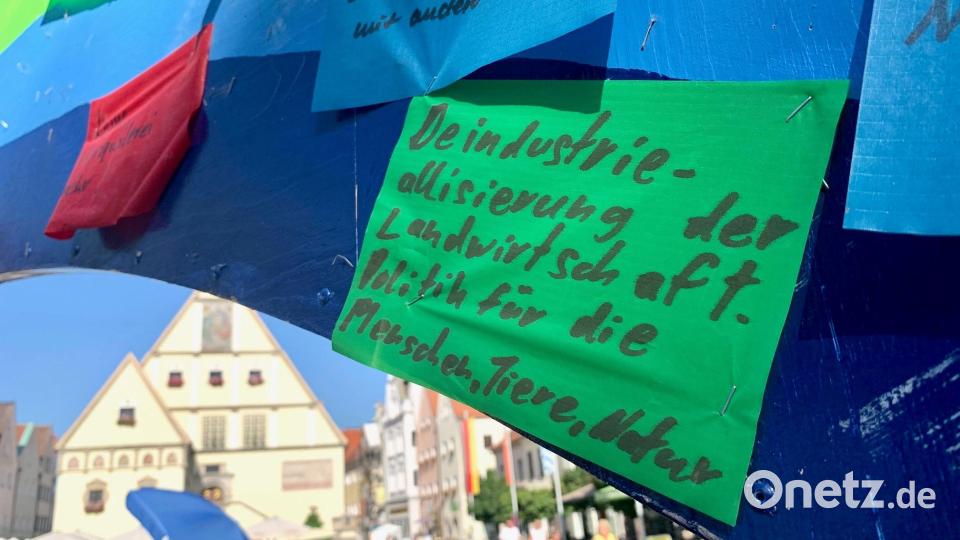 mit anderen
Deindustrie-
allisierung der
Landwirtschaft.
Politik für die
Menschen, Tiere, Natur
Onetz.de